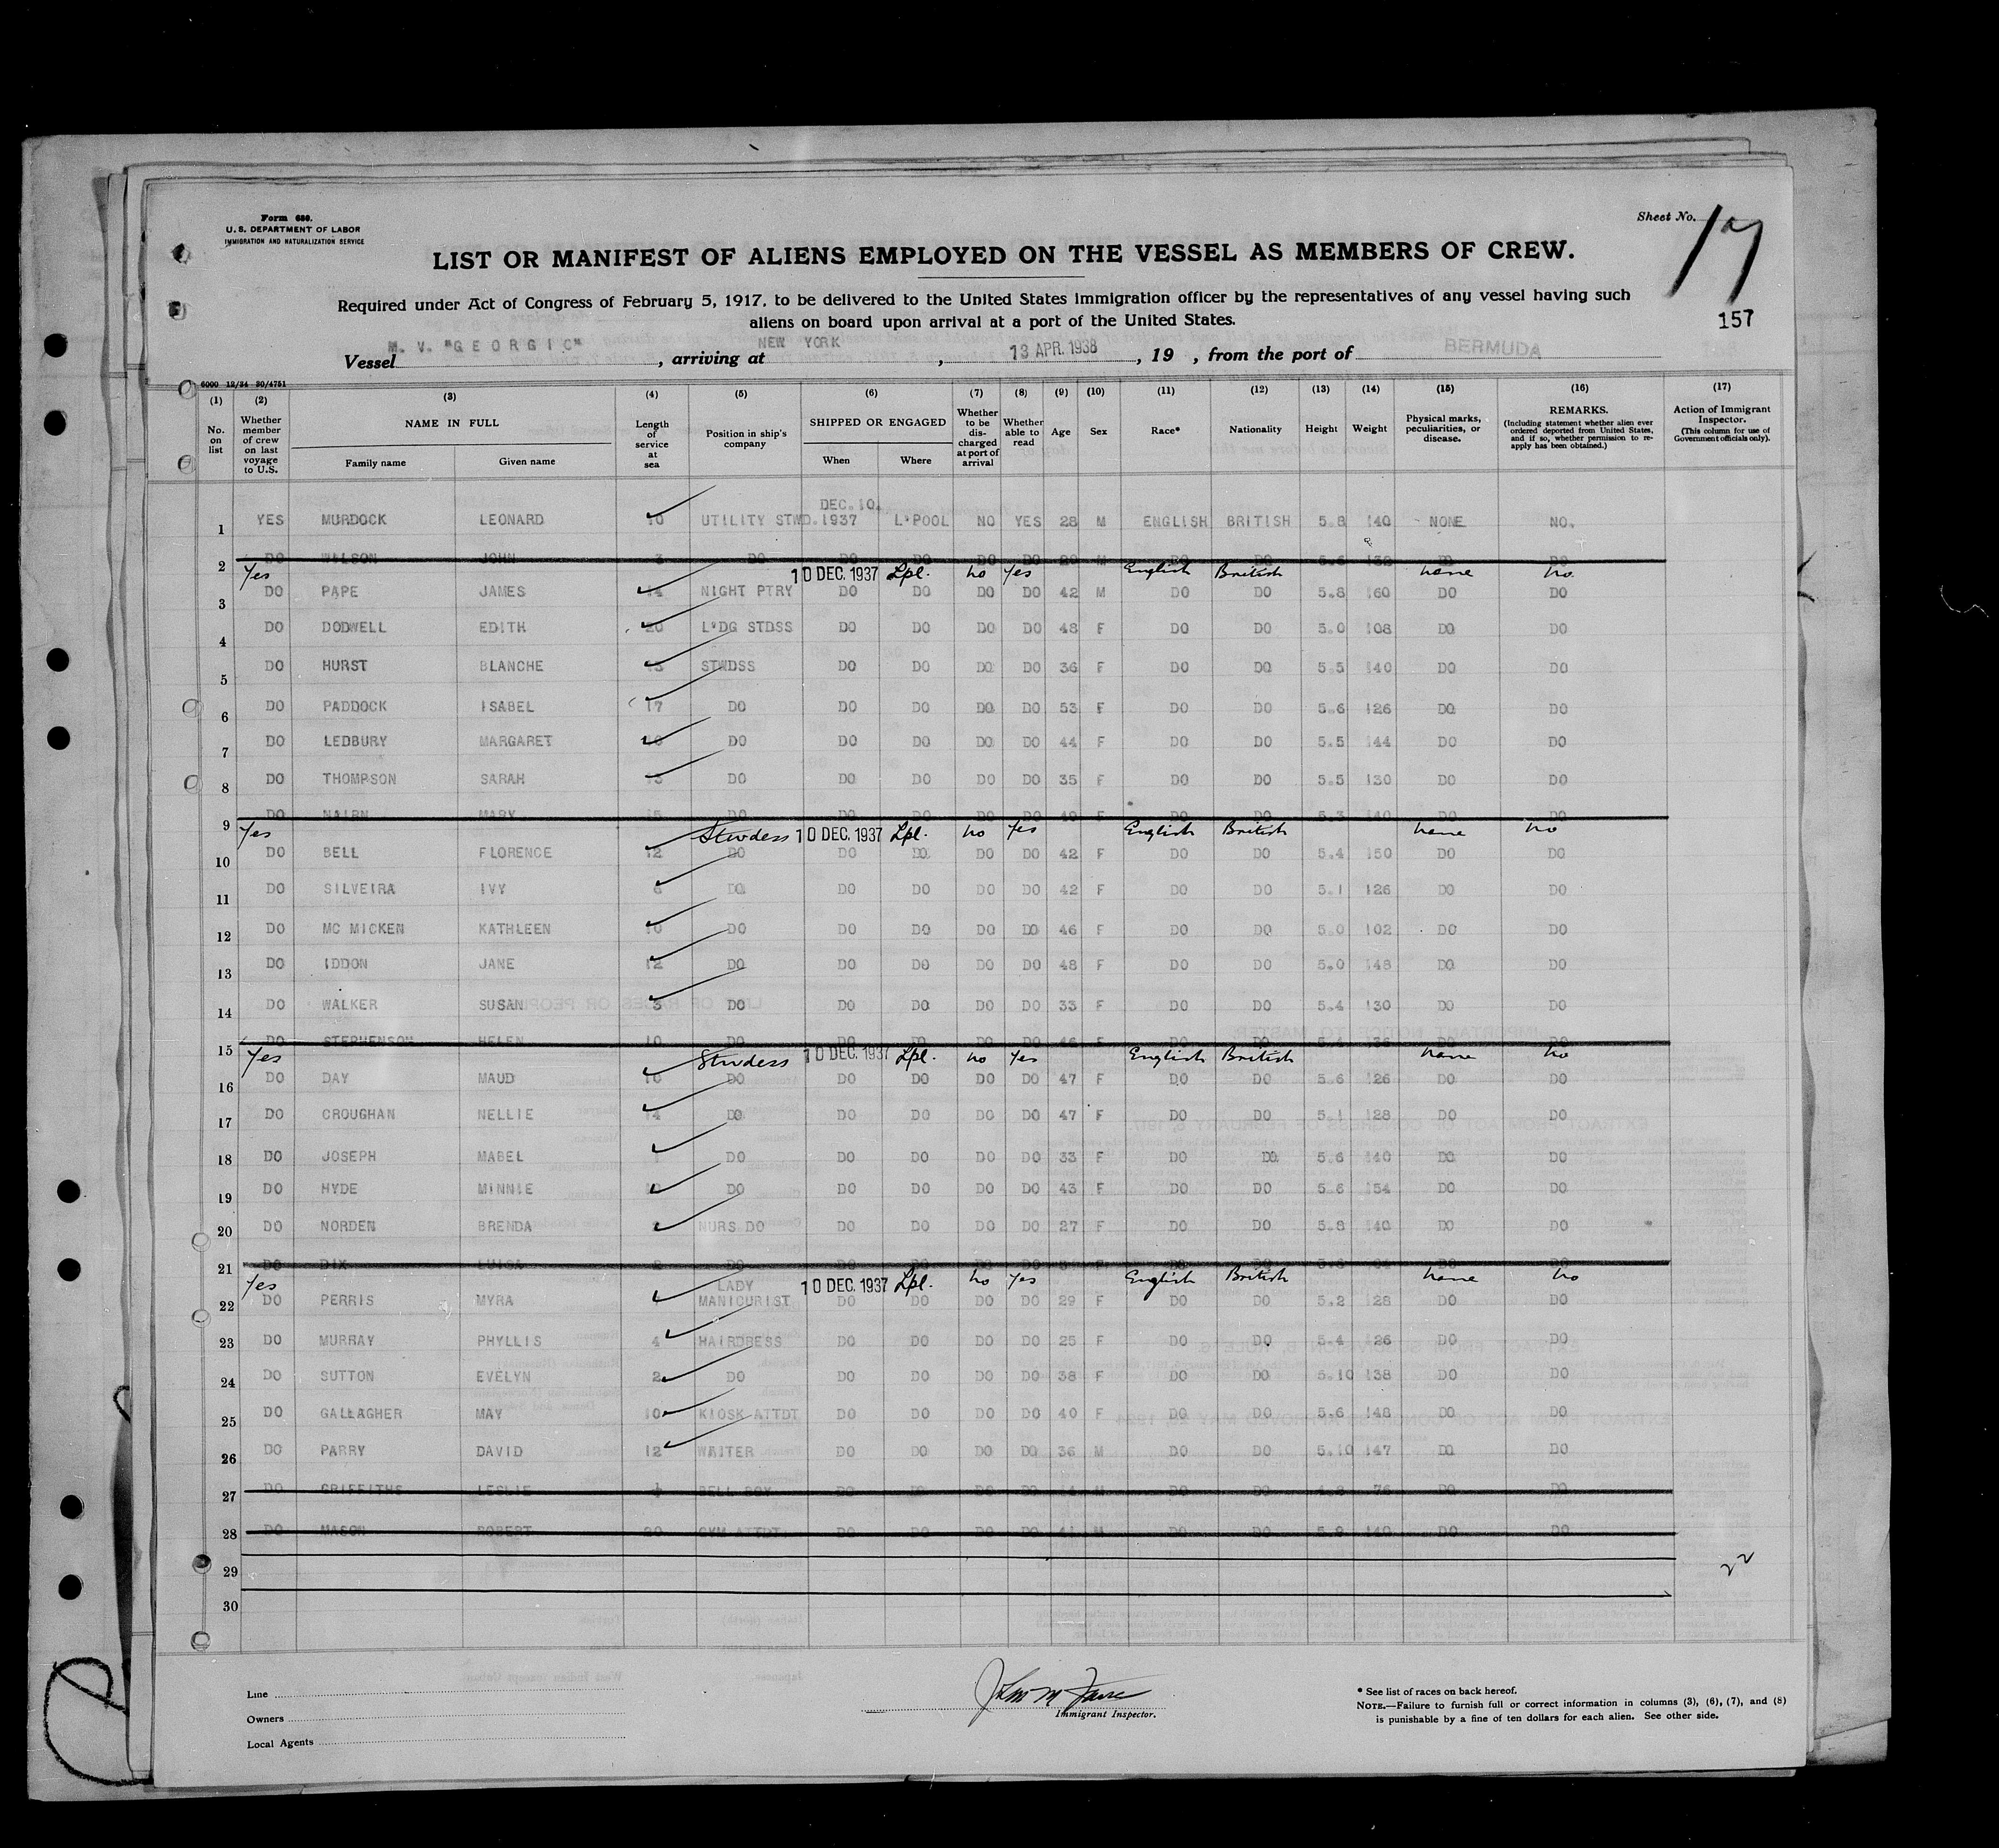 Form 680.
U. S. DEPARTMENT OF LABOR
IMMIGRATION AND NATURALIZATION SERVICE
Sheet No. 17
LIST OR MANIFEST OF ALIENS EMPLOYED ON THE VESSEL AS MEMBERS OF CREW.
Required under Act of Congress of February 5, 1917, to be delivered to the United States immigration officer by the representatives of any vessel having such
aliens on board upon arrival at a port of the United States.
157
Vessel M. V. "GEORGIC", arriving at NEW YORK, 13 APR. 1938, 19 , from the port of BERMUDA
6000 12/34 30/4751
(1) (2) (3) (4) (5) (6) (7) (8) (9) (10) (11) (12) (13) (14) (15) (16) (17)
No. on list
Whether member of crew on last voyage to U.S.
NAME IN FULL
Family name Given name
Length of service at sea
Position in ship's company
SHIPPED OR ENGAGED
When Where
Whether to be discharged at port of arrival
Whether able to read
Age
Sex
Race*
Nationality
Height
Weight
Physical marks, peculiarities, or disease.
REMARKS.
(Including statement whether alien ever ordered deported from United States, and if so, whether permission to reapply has been obtained.)
Action of Immigrant Inspector.
(This column for use of Government officials only).
DEC. 10,
1 YES MURDOCK LEONARD 10 UTILITY STWD. 1937 L'POOL NO YES 28 M ENGLISH BRITISH 5.8 140 NONE NO.
2 DO WILSON JOHN 3 DO DO DO DO DO M DO DO DO DO
Yes 10 DEC. 1937 Lpl. no Yes English British none no
3 DO PAPE JAMES 14 NIGHT PTRY DO DO DO DO 42 M DO DO 5.8 160 DO DO
4 DO DODWELL EDITH 20 L'DG STDSS DO DO DO DO 48 F DO DO 5.0 108 DO DO
5 DO HURST BLANCHE 13 STWDSS DO DO DO DO 36 F DO DO 5.5 140 DO DO
6 DO PADDOCK ISABEL 17 DO DO DO DO DO 53 F DO DO 5.6 126 DO DO
7 DO LEDBURY MARGARET DO DO DO DO DO 44 F DO DO 5.5 144 DO DO
8 DO THOMPSON SARAH 13 DO DO DO DO DO 35 F DO DO 5.5 130 DO DO
9 DO NAIRN MARY 15 DO DO DO DO DO F DO DO 5.3 140 DO DO
Yes Stwdess 10 DEC. 1937 Lpl. no Yes English British none no
10 DO BELL FLORENCE 12 DO DO DO DO DO 42 F DO DO 5.4 150 DO DO
11 DO SILVEIRA IVY 6 DO DO DO DO DO 42 F DO DO 5.1 126 DO DO
12 DO MC MICKEN KATHLEEN 10 DO DO DO DO DO 46 F DO DO 5.0 102 DO DO
13 DO IDDON JANE 12 DO DO DO DO DO 48 F DO DO 5.0 148 DO DO
14 DO WALKER SUSAN DO DO DO DO DO 33 F DO DO 5.4 130 DO DO
15 DO STEPHENSON HELEN 10 DO DO DO DO DO F DO DO DO DO
Yes Stwdess 10 DEC. 1937 Lpl. no Yes English British none no
16 DO DAY MAUD 10 DO DO DO DO DO 47 F DO DO 5.6 126 DO DO
17 DO CROUGHAN NELLIE 14 DO DO DO DO DO 47 F DO DO 5.1 128 DO DO
18 DO JOSEPH MABEL DO DO DO DO DO 33 F DO DO 5.6 140 DO DO
19 DO HYDE MINNIE DO DO DO DO DO 43 F DO DO 5.6 154 DO DO
20 DO NORDEN BRENDA NURS DO DO DO DO DO 27 F DO DO 5.8 140 DO DO
21 DO DIX LUISA DO DO DO DO DO DO DO DO DO
Yes LADY 10 DEC. 1937 Lpl. no Yes English British none no
22 DO PERRIS MYRA MANICURIST DO DO DO DO 29 F DO DO 5.2 128 DO DO
23 DO MURRAY PHYLLIS 4 HAIRDRESS DO DO DO DO 25 F DO DO 5.4 126 DO DO
24 DO SUTTON EVELYN 2 DO DO DO DO DO 38 F DO DO 5.10 138 DO DO
25 DO GALLAGHER MAY 10 KIOSK ATTDT DO DO DO DO 40 F DO DO 5.6 148 DO DO
26 DO PARRY DAVID 12 WRITER DO DO DO DO 36 M DO DO 5.10 147 DO DO
27 DO GRIFFITHS LESLIE BELL BOY DO DO DO DO M DO DO 4.8 76 DO DO
28 DO MASON ROBERT 20 GYM ATTDT DO DO DO DO 41 M DO DO 5.9 140 DO DO
29
30
22
Line
Owners
Local Agents
Immigrant Inspector.
* See list of races on back hereof.
NOTE.—Failure to furnish full or correct information in columns (3), (6), (7), and (8)
is punishable by a fine of ten dollars for each alien. See other side.